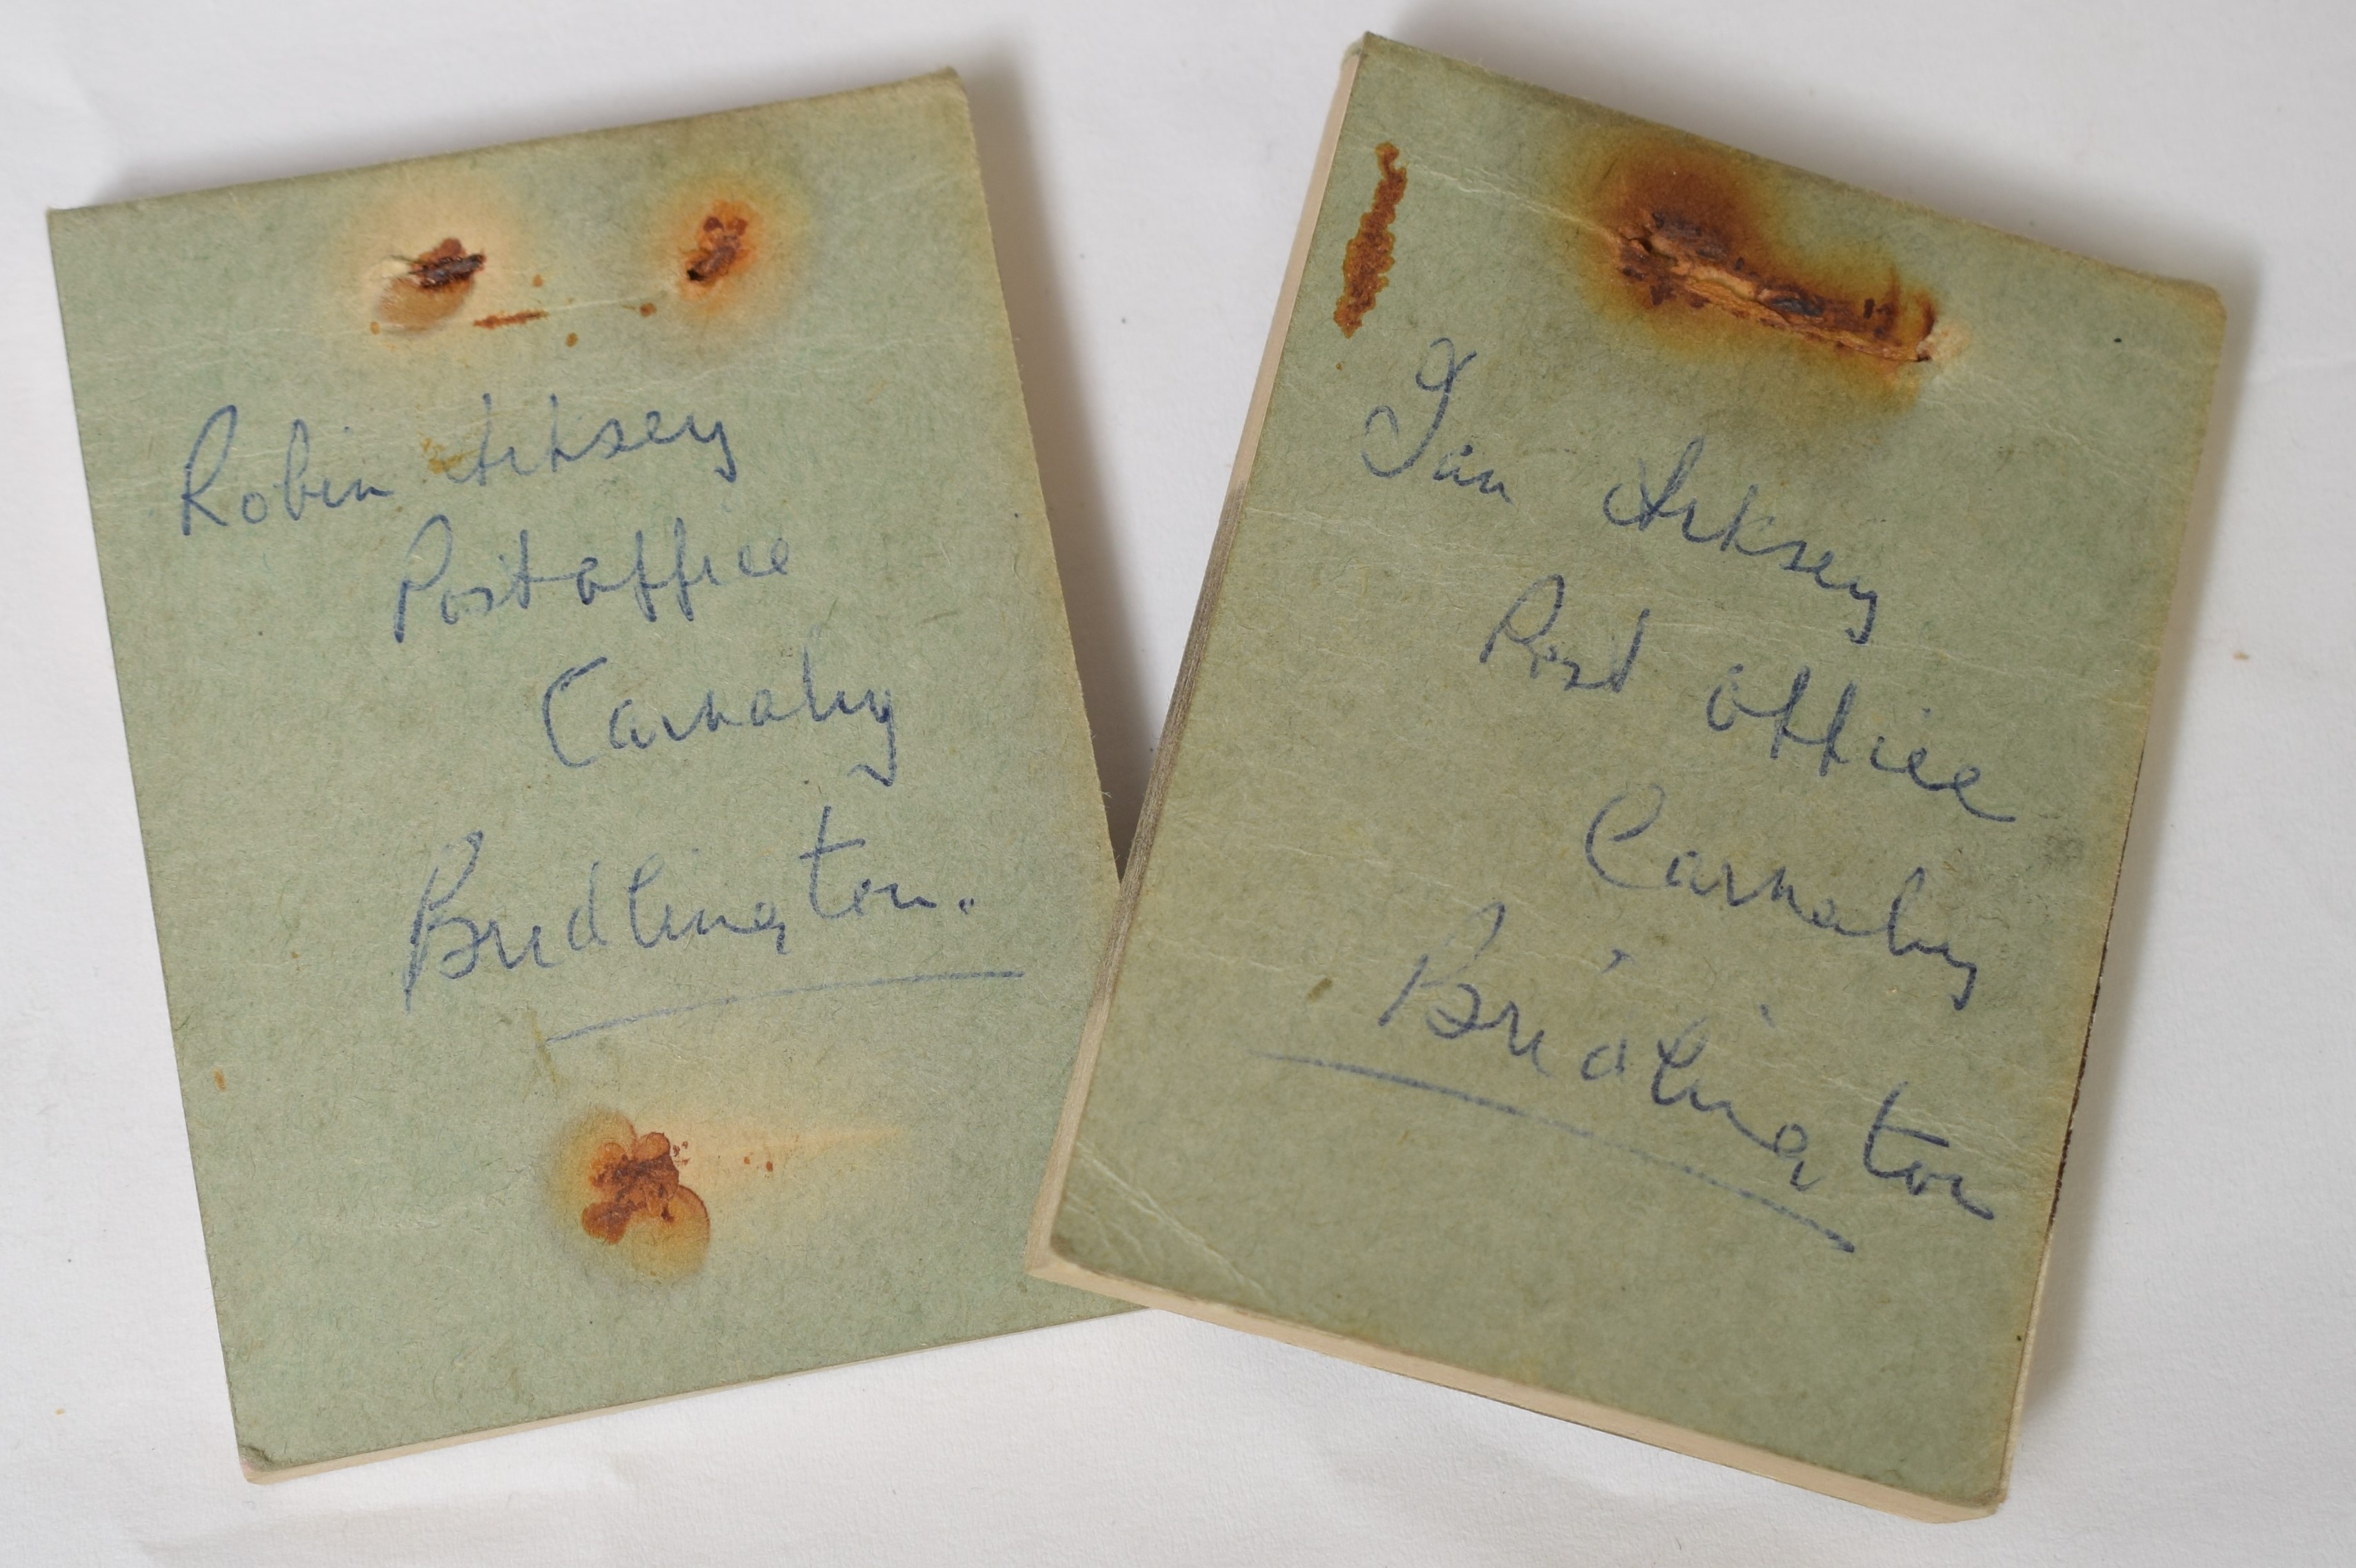 Robin Arksey
Post office
Carnaby
Bridlington.
Ian Arksey
Post office
Carnaby
Bridlington